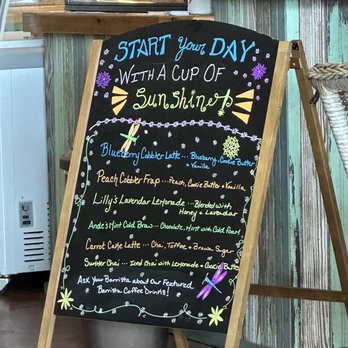 START Your DAY
WITH A CUP OF
Sunshine
Blueberry Cobbler Latte ... Blueberry, Cookie Butter
+ Vanilla
Peach Cobbler Frap ... Peach, Cookie Butter + Vanilla
Lilly's Lavendar Lemonade ... Blended with
Honey + Lavendar
Ande's Mint Cold Brew ... Chocolate, Mint with Cold Foam
Carrot Cake Latte ... Chai, Toffee + Brown Sugar
Summer Chai ... Iced Chai with Lemonade + Cookie Butter
Ask Your Barrista about Our Featured
Barrista Coffee Drinks!